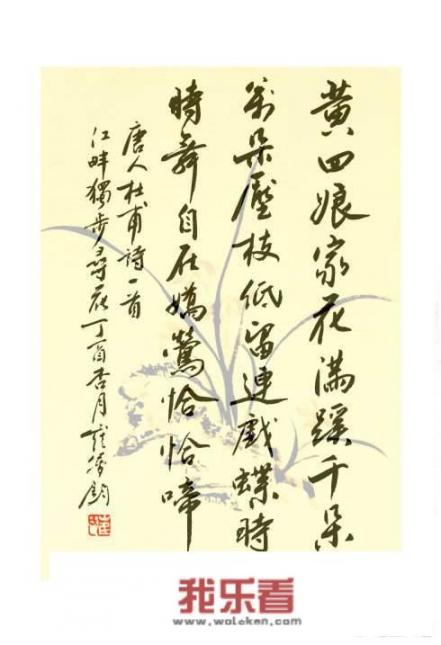 黄四娘家花滿蹊千朵
萬朵壓枝低留連戲蝶時
時舞自在嬌鶯恰恰啼
唐人杜甫詩一首
江畔獨步尋花丁酉杏月
我乐看
www.woleken.com